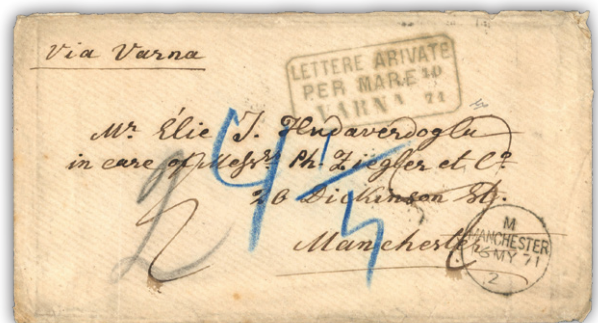 Via Varna
LETTERE ARIVATE
PER MARE
VARNA 71
Mr. Élie J. Hudaverdoglu
in care of Messrs. Ph. Ziegler et Co.
26 Dickinson St.
Manchester
2
4/5
M
MANCHESTER
MY 71
2